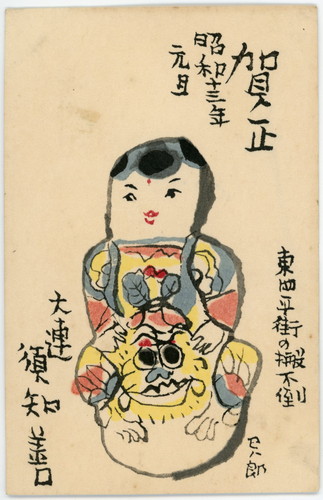 賀正
昭和十三年
元旦
東四平街の搬不倒
大連
須知善